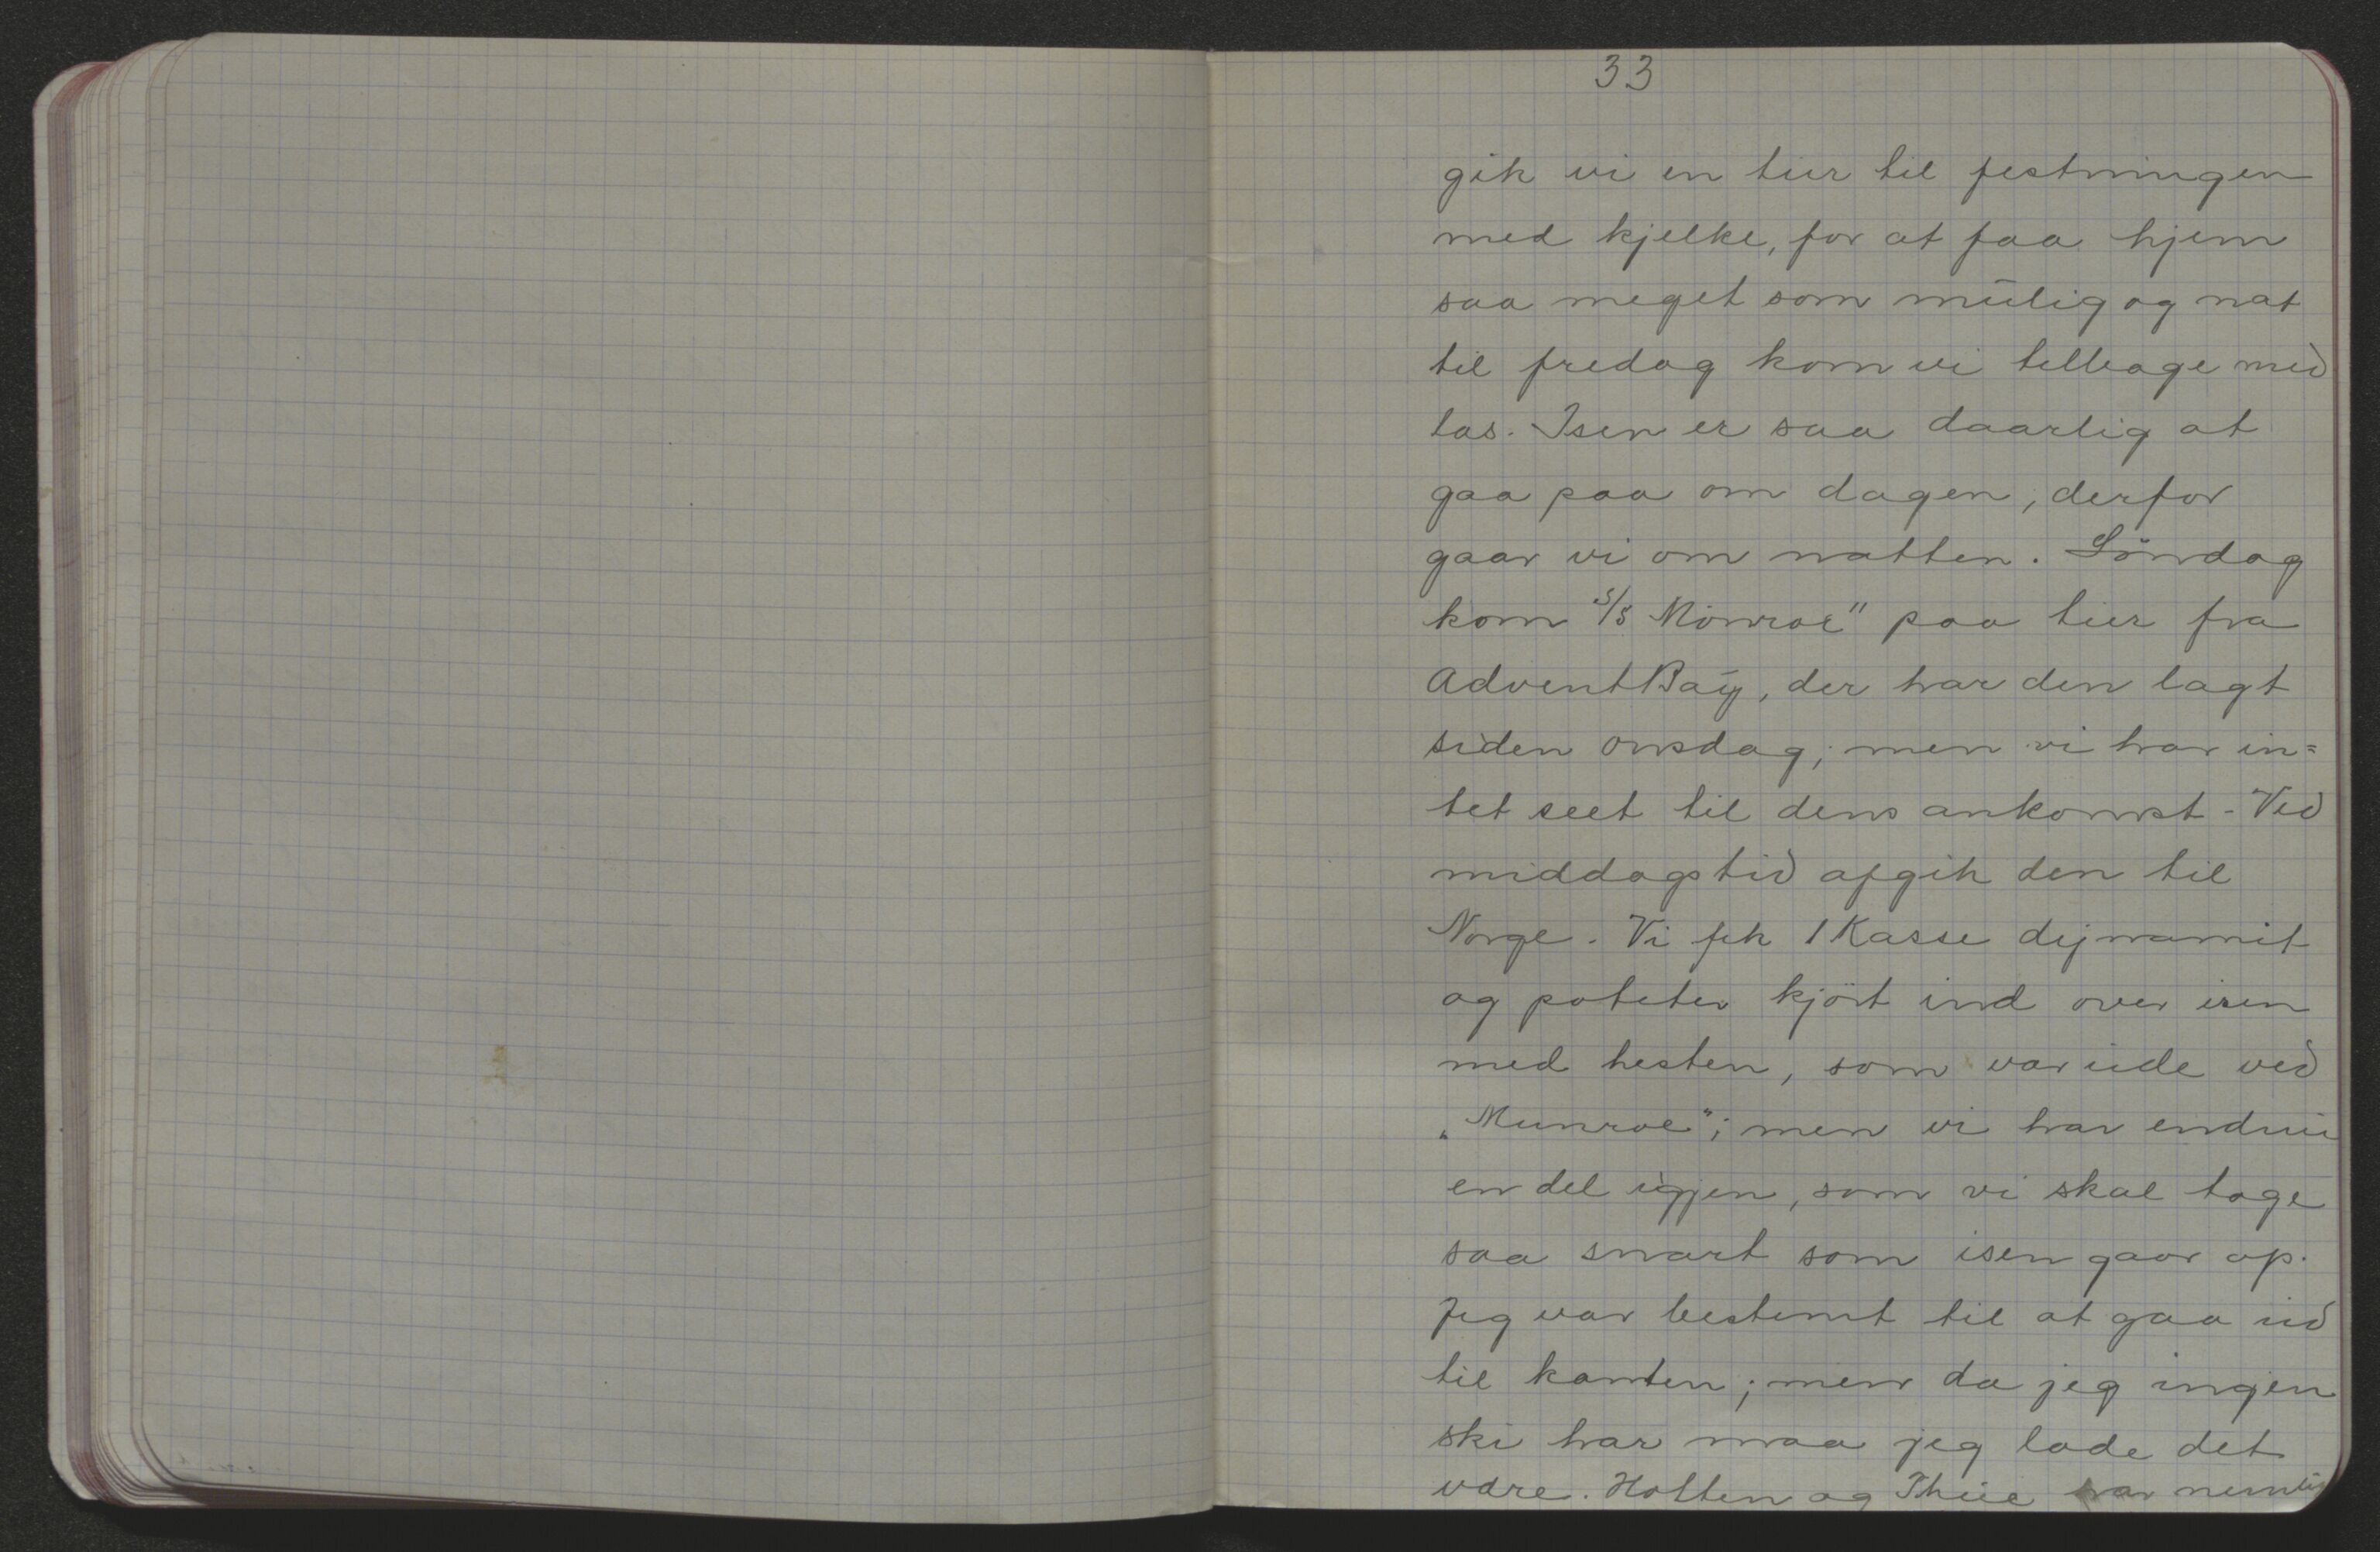 33
gik vi en tur til festningen
med kjelke, for at faa hjem
saa meget som mulig og nat
til fredag kom vi tilbage med
las. Isen er saa daarlig at
gaa paa om dagen, derfor
gaar vi om natten. Söndag
kom "S/S Monroe" paa tur fra
Advent Bay, der har den lagt
siden onsdag; men vi har in=
tet seet til dens ankomst. Ved
middagstid afgik den til
Norge. Vi fik 1 Kasse dynamit
og poteter kjört ind over isen
med hesten, som var ude ved
„Munroe"; men vi har endnu
en del igjen, som vi skal tage
saa snart som isen gaar op.
Jeg var bestemt til at gaa ud
til kanten; men da jeg ingen
ski har maa jeg lade det
være. Holten og Thue har nemlig